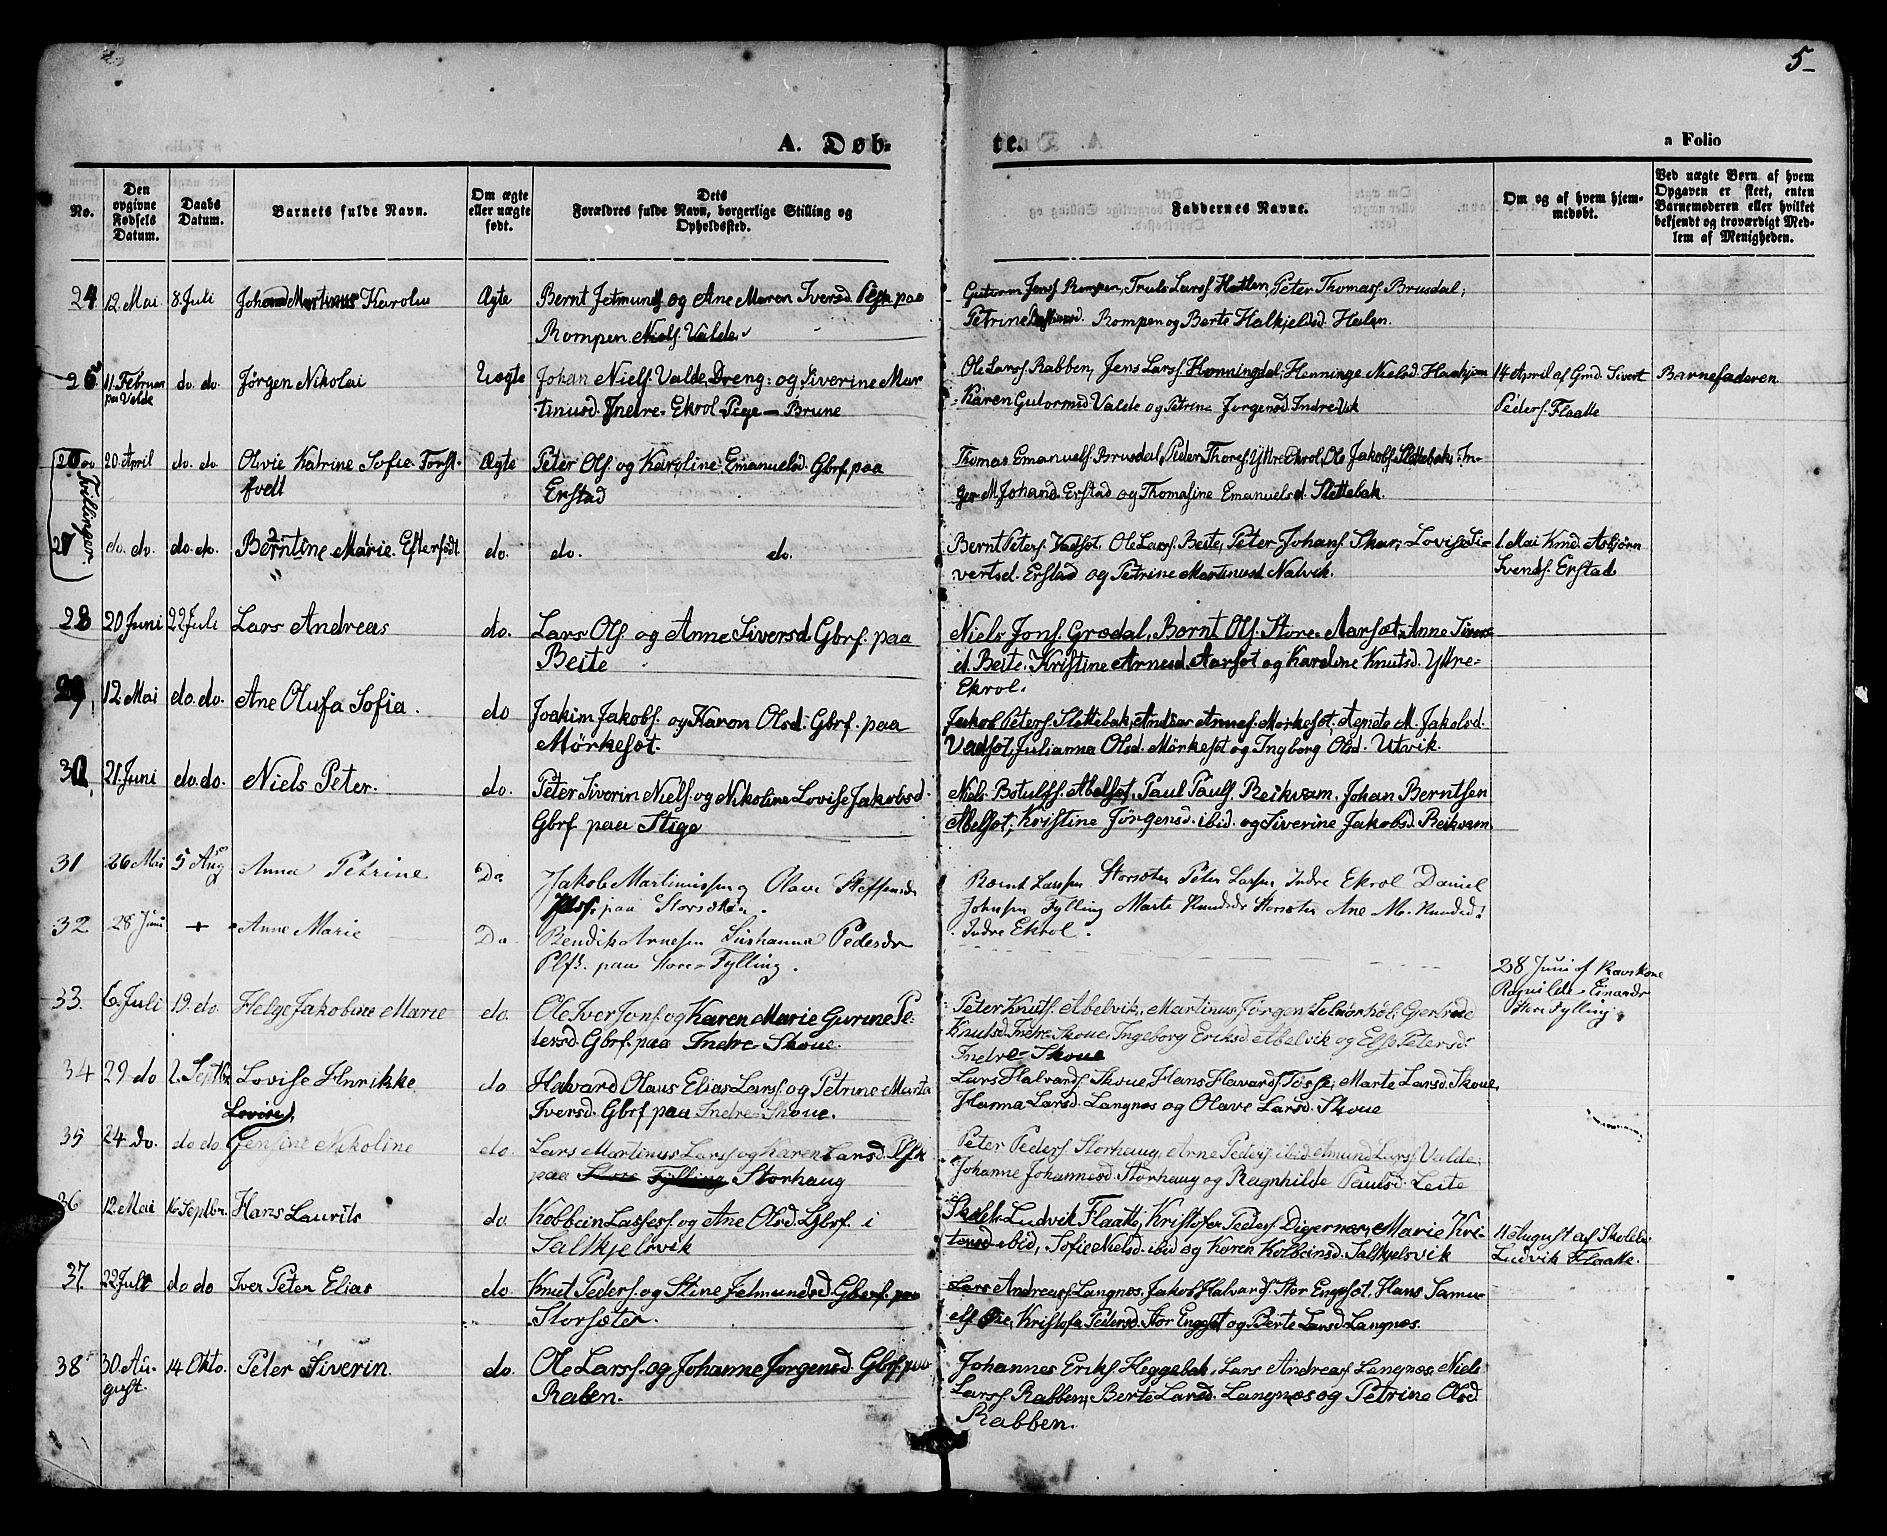 5
A. Døbte.
a Folio
No.
Den opgivne Fødsels Datum.
Daabs Datum.
Barnets fulde Navn.
Om ægte eller uægte født.
Dets Forældres fulde Navn, borgerlige Stilling og Opholdssted.
Faddernes Navne.
Om og af hvem hjemmedøbt.
Ved uægte Børn af hvem Opgaven er skeet, enten Barnemoderen eller hvilket bekjendt og troværdigt Medlem af Menigheden.
24 12 Mai 8 Juli Johan Martinus Karolus Ægte Bernt Jetmunds. og Ane Maren Iversd. paa
Rompen Niels. Valde
Gutorm Jens. Rompen, Truls Lars. Hatlen, Peter Thomas. Brusdal,
Petrine Rompen og Berte Halkjelsd. Helen.
25 11 Februar paa Valde do. do. Jørgen Nikolai Uægte Johan Niels. Valde, Dreng: og Siverine Mar
tinusd. Indre-Ekrol Pige — Brune
Ole Lars. Rabben, Jens Lars. Honningdal, Henninge Nielsd. Haahjem
Karen Gutormsd Valde og Petrine Jørgensd. Indrevik
14 April af Gmd. Sivert
Peders. Flaatte
Barnefaderen
Tvillinger
26 20 April do. do. Olvie Katrine Sofie Først-
født Ægte Peter Ols. og Karoline Emanuelsd. Gbrf. paa
Erstad
Thomas Emanuels. Brusdal, Peder Thores. Yttre Ekrol, Ole Jakobs. Slettebak, In-
ger M. Johansd. Erstad og Thomasine Emanuelsd. Slettebak.
27 do. do. do. do. Berntine Marie. Efterfødt do. do. do.
Bernt Peters. Vadsøt, Ole Lars. Beite, Peter Johans. Skar, Lovise Si-
vertsd. Erstad og Petrine Martinusd Nalvik.
1 Mai Kmd. Asbjørn
Svends. Erstad
28 20 Juni 22 Juli Lars Andreas do. Lars Ols. og Anne Siversd. Gbrf. paa
Beite
Niels Jons. Grødal, Bernt Ols. Store-Aarsæt, Anne Sivers
d. Beite. Kristine Arnesd Aarsæt og Karoline Knutsd. Yttre-
Ekrol.
29 12 Mai do. do. Ane Olufa Sofia. do Joakim Jakobs. og Karen Olsd. Gbrf. paa
Mørkesæt.
Jakob Peters. Slettebak, Andias Annes. Mørkesæt, Agnete M. Jakobsd.
Vadsøt, Julianna Olsd. Mørkesæt og Ingborg Olsd. Utvik.
30 21 Juni do. do. Niels Peter. do. Peter Siverin Niels. og Nikoline Lovise Jakobsd.
Gbrf. paa Stige
Niels Botulfs. Abelsæt, Paul Pauls. Reikvam, Johan Berntsen
Abelsæt, Kristine Jørgensd. ibid. og Siverine Jakobsd. Reikvam.
31 26 Mai 5 Aug Anna Petrine Do Jakob Martinussen og Olave Steffensdr
Plsf. paa Storsæter.
Bernt Larsen Storsæter Peter Larsen Indre Ekrol Daniel
Johnsen Fylling Marte Knudsdr Storsæter Ane M. Knudsd.
Indre Ekrol.
32 28 Juni + Anne Marie Do Bendik Arnesen Sushanna Pedersdr
Plfk. paa Store-Fylling.
28 Juni af Kavskone
Ragnilde Einarsdr
Store Fylling
33. 6 Juli 19. do. Helge Jakobine Marie do. Ole Iver Jons. og Karen Marie Gurine Pe-
tersd. Gbrf. paa Indre-Skoue.
Peter Knuts. Abelvik, Martinus Jørgen Gertrud
Knutsd. Indre Skoue, Ingeborg Eriksd. Abelvik og Else Petersd.
Indre-Skoue
34 29 do 2. Septbr Lovise Hnrikke do Halvard Olaus Elias Lars. og Petrine Marta
Iversd. Gbrf. paa Indre-Skoue.
Lars Halvards. Skoue, Hans Havards. Tøsse, Marte Larsd. Skoue,
Hanna Larsd. Langnes og Olave Larsd. Skoue
35 24 do. do do Lovise, Jensine Nikoline do. Lars Martinus Lars. og Karen Larsd. Plfk
paa Store Fylling Storhaug
Peter Peders. Storhaug, Arne Peders. ibid Amund Lars. Valde,
Johanne Johannesd. Storhaug og Ragnhilde Paulsd. Leite
36 12. Mai 16 Septbr. Hans Laurits do Kobbein Lasses. og Ane Olsd. Gbrf. i
Salkjelsvik
Ludvik Flaatte, Kristofer Peders. Digernes, Marie Kri-
ibid, Sofie Nielsd. ibid og Karen Kolbeinsd. Salkjelsvik
11 August af Skolelr.
Ludvik Flaatte.
37 22 Juli do do Iver Peter Elias do. Knut Peders. og Stine Jetmundsd. Gbrf. paa
Storsæter.
Lars Andreas. Langnes, Jakob Halvards. Stor Engesæt, Hans Samu-
els. Øie, Kristofa Pedersd. Stor Engesæt og Berte Larsd. Langnes.
38 30 Au-
gust. 14 Okto. Peter Siverin do. Ole Lars. og Johanne Jørgensd. Gbrf. paa
Raben.
Johannes Eriks. Heggebak, Lars Andreas. Langnes, Niels
Lars. Rabben, Berte Larsd. Langnes og Petrine Olsd.
Rabben.